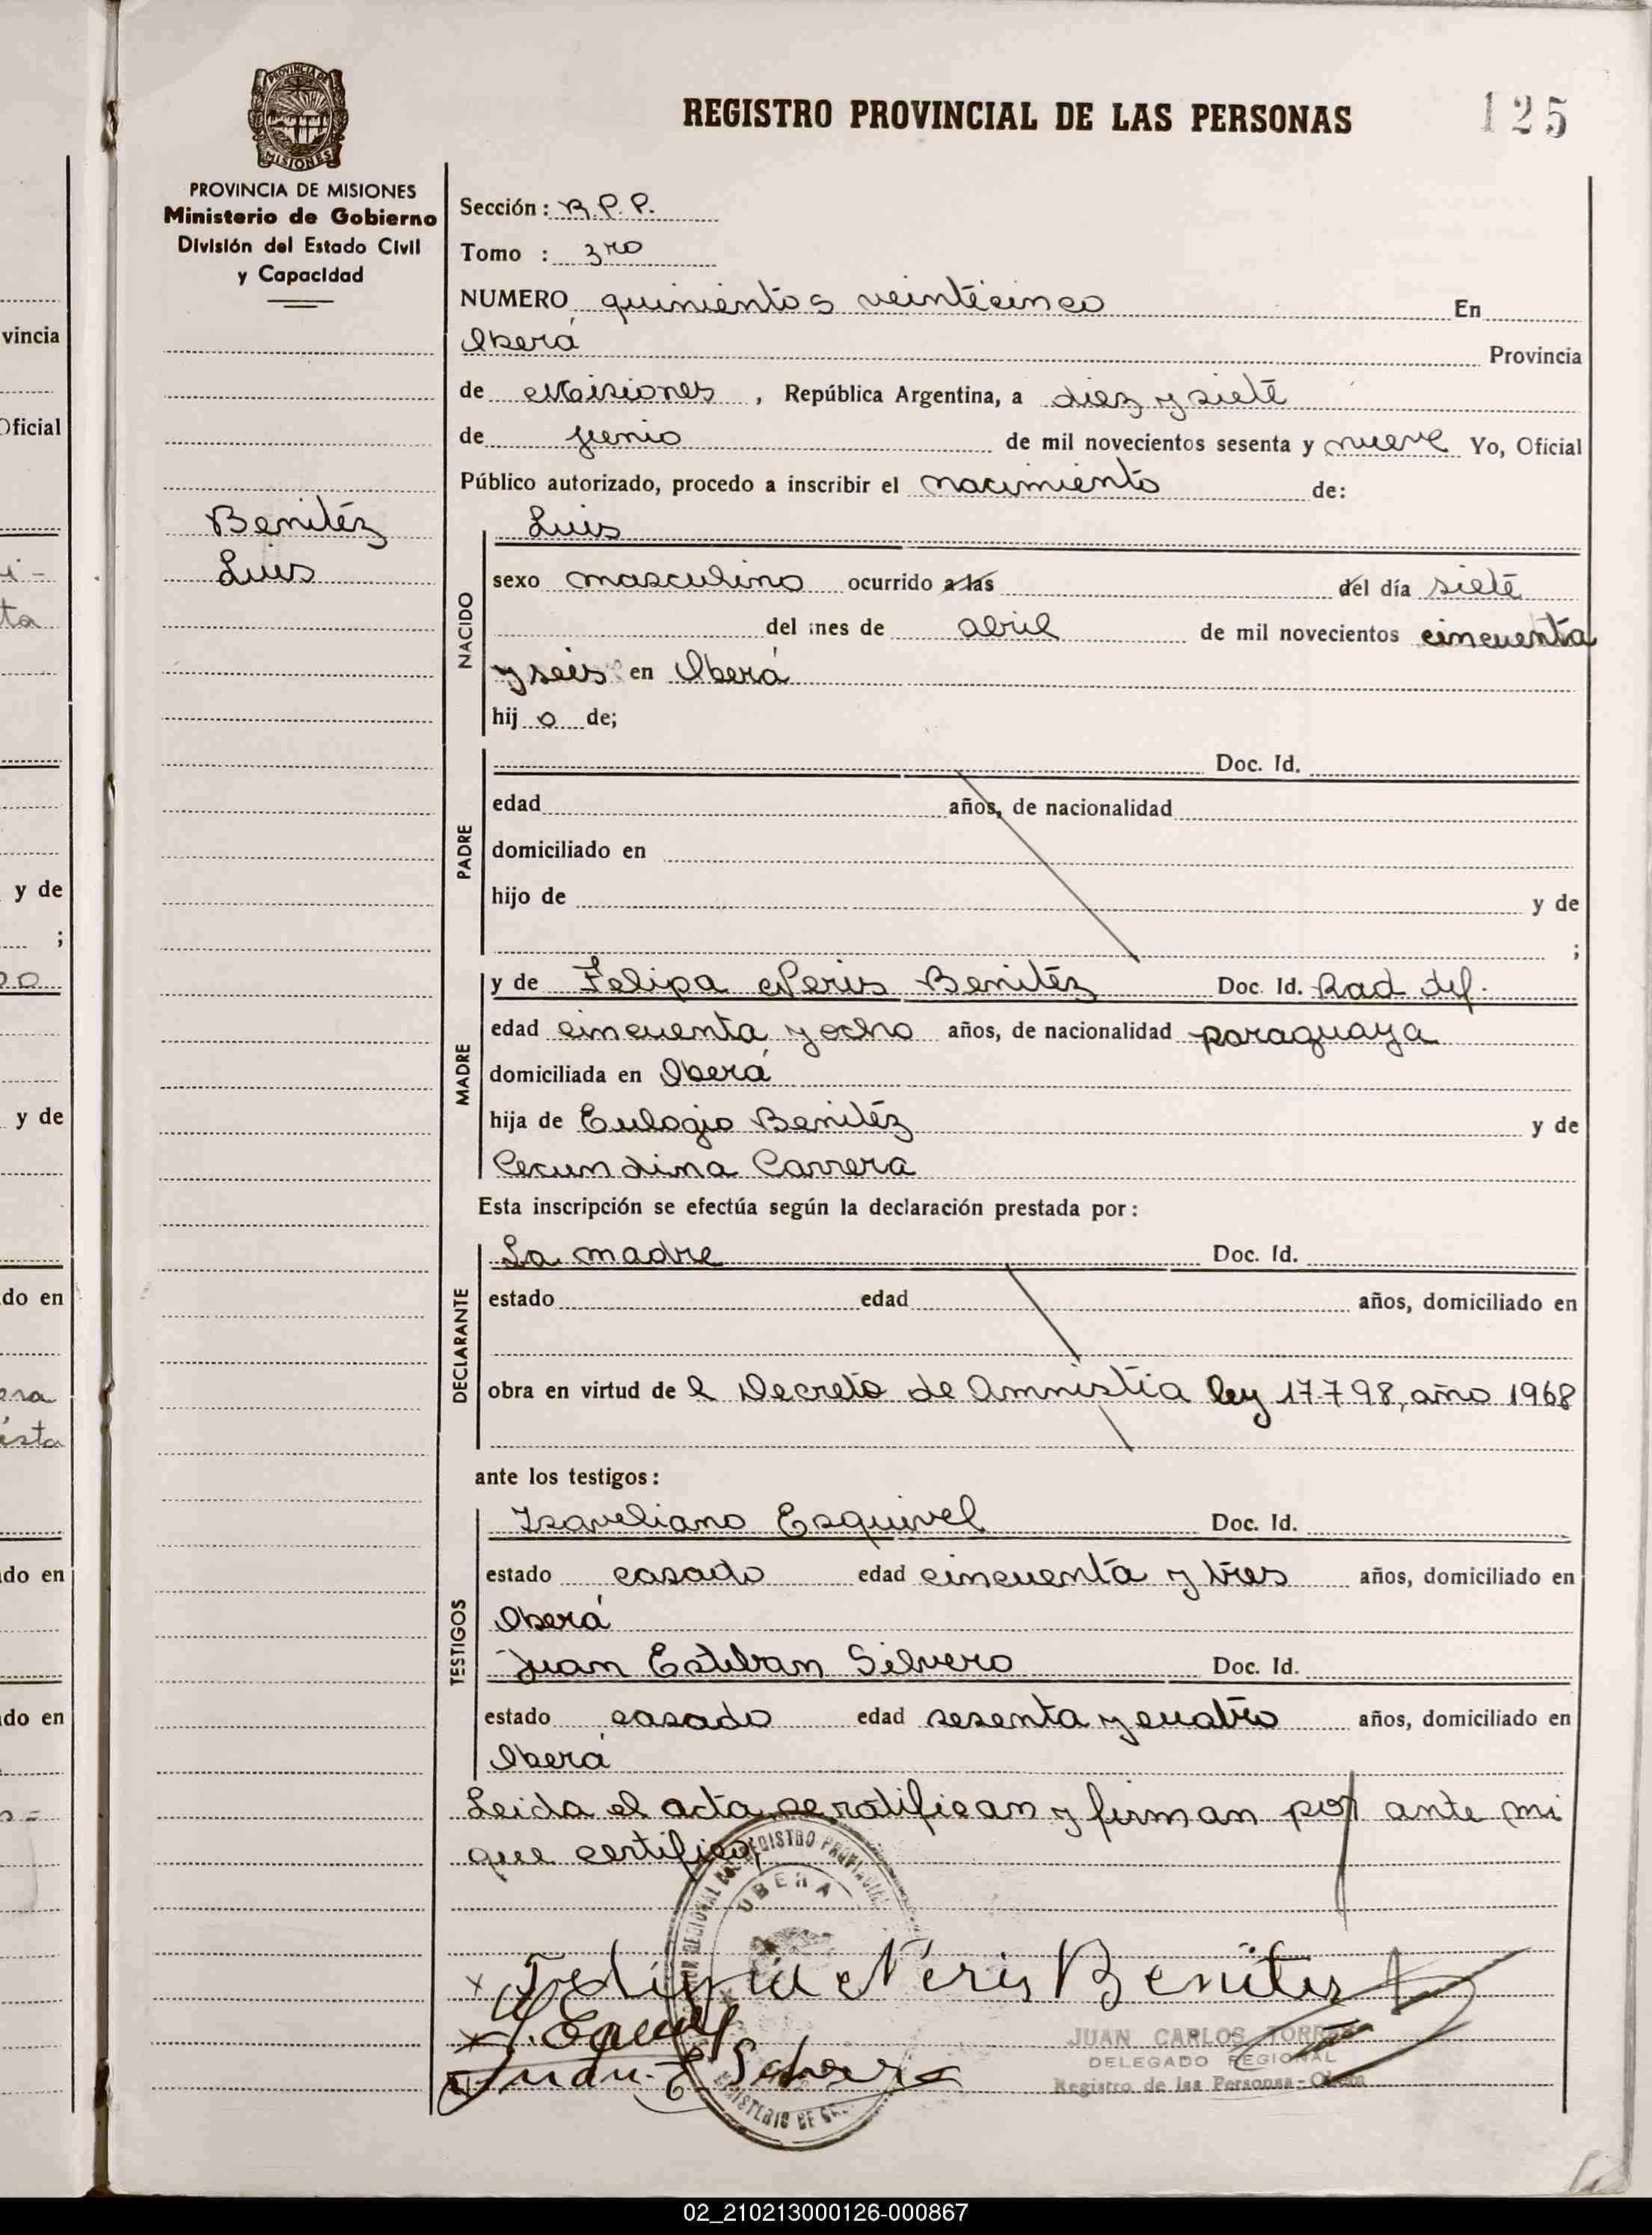 REGISTRO PROVINCIAL DE LAS PERSONAS
125
PROVINCIA DE MISIONES
PROVINCIA DE MISIONES
Ministerio de Gobierno
División del Estado Civil
y Capacidad
Benitéz
Luis
Sección: R.P.P.
Tomo : 3ro
NUMERO quinientos veinticinco En
Oberá Provincia
de Misiones, República Argentina, a diez y siete
de junio de mil novecientos sesenta y nueve Yo, Oficial
Público autorizado, procedo a inscribir el nacimiento de:
NACIDO
Luis
sexo masculino ocurrido a las del día siete
del mes de abril de mil novecientos cincuenta
y seis en Oberá
hijo de;
PADRE
Doc. Id.
edad años, de nacionalidad
domiciliado en
hijo de y de
;
MADRE
y de Felipa Neris Benitéz Doc. Id. Rad def.
edad cincuenta y ocho años, de nacionalidad paraguaya
domiciliada en Oberá
hija de Eulogio Benitéz y de
Cecundina Carrera
Esta inscripción se efectúa según la declaración prestada por:
DECLARANTE
La madre Doc. Id.
estado edad años, domiciliado en
obra en virtud de l Decreto de Amnistia ley 17.798, año 1968
ante los testigos:
TESTIGOS
Isaveliano Esquivel Doc. Id.
estado casado edad cincuenta y tres años, domiciliado en
Oberá
Juan Esteban Silvero Doc. Id.
estado casado edad sesenta y cuatro años, domiciliado en
Oberá
Leida el acta, se ratifican y firman por ante mi
que certifico,
OBERA
x Neris Benites
Juan. E
JUAN CARLOS TORRES
DELEGADO REGIONAL
Registro de las Personas - Obera
vincia
Oficial
ta
y de
;
y de
do en
do en
do en
02_210213000126-000867